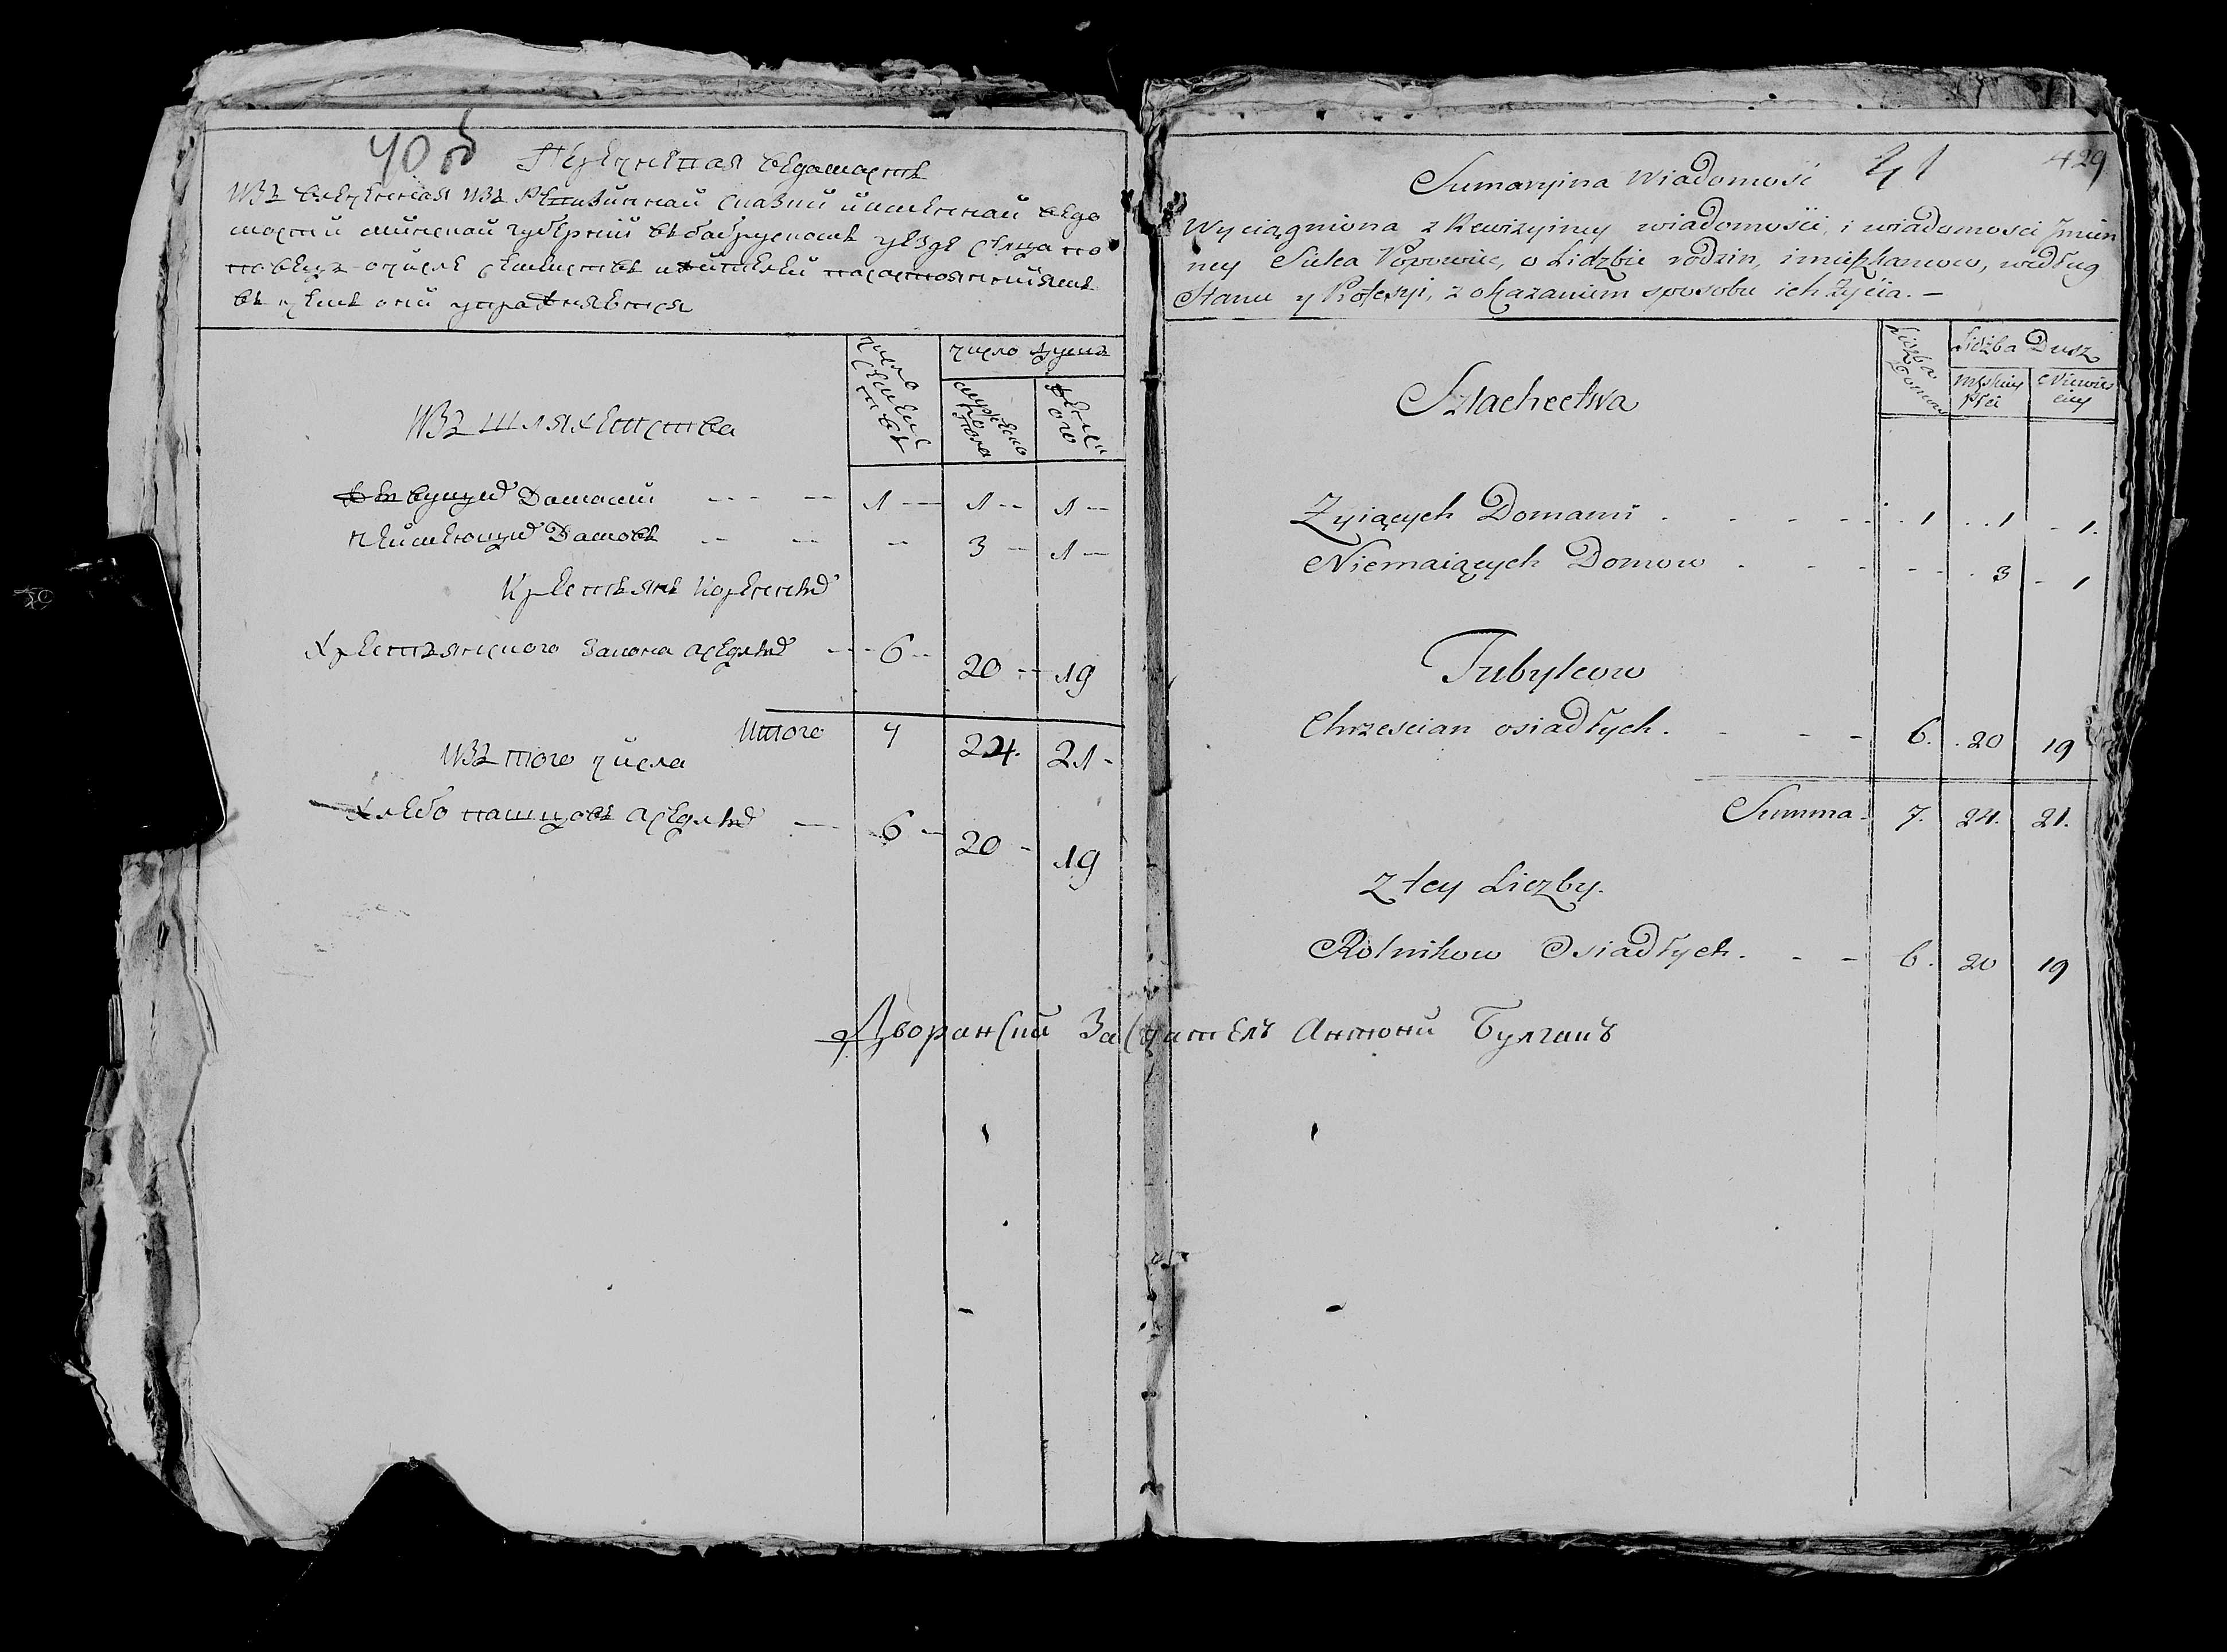 40 об
Перечнетая ведамасть
изъ влеченная изъ Ревизийнай сказки иимяннай ведо
мости минскай губернии въ бабрускомъ уезде сельца по
повецъ о числе семействъ и жителей по состоянииямъ
въ чемъ они упражняется
число семействъ
число душъ
мужеско пола
женского
изъ шляхетства
живущих Домами 1 1 1
неимеющих Дамовъ 3 1
Крестьянъ Коренных
Хрестьянского закона оседлых 6 20 19
Итого 7 24. 21
изъ того числа
Хлебопашцовъ оседлых 6 20 19
Дворанский Заседатель Антони Булгакъ
429
41
Sumaryina Wiadomość
Wyciągniona z Rewizyiney wiadomości, i wiadomosci Jmien
ney Sielca Popowiec, o Lidzbie rodzin, i mięszkancow, według
Stanu y Profesyi, z okazaniem sposobu ich Życia. –
Liczba Domow
Lidzba Dusz
Męskiey Płci
Niewieściey
Szlachectwa
Zyiących Domami 1 1 1.
Niemaiących Domow 3 1
Tubylcow
Chrzescian osiadłych. 6. 20 19
Summa 7. 24. 21.
z tey Liczby.
Rolnikow Osiadłych. 6. 20 19